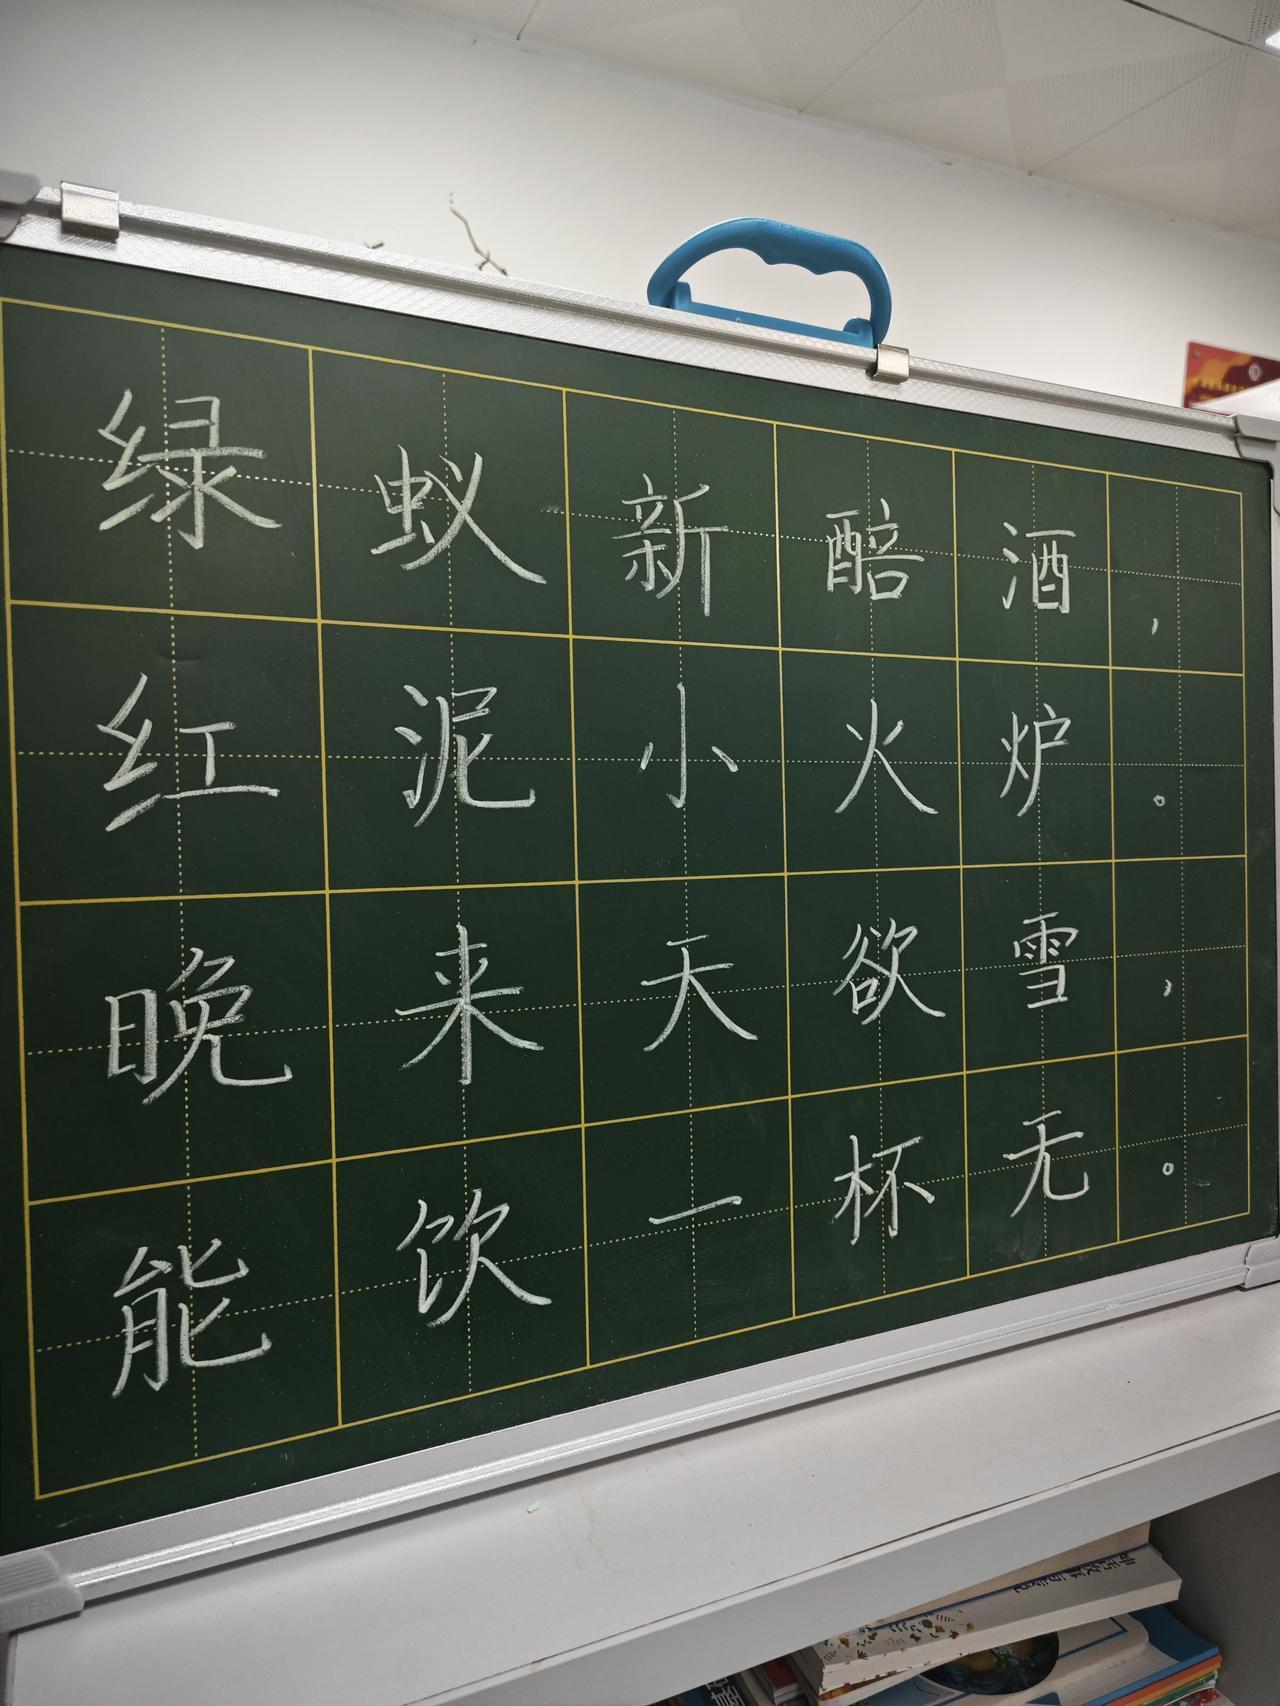 绿蚁新醅酒，
红泥小火炉。
晚来天欲雪，
能饮一杯无。